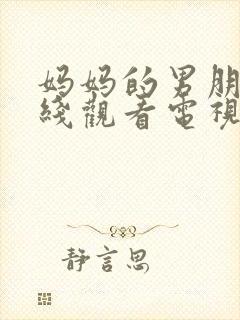 妈妈的男朋
线觀看電視
靜言思